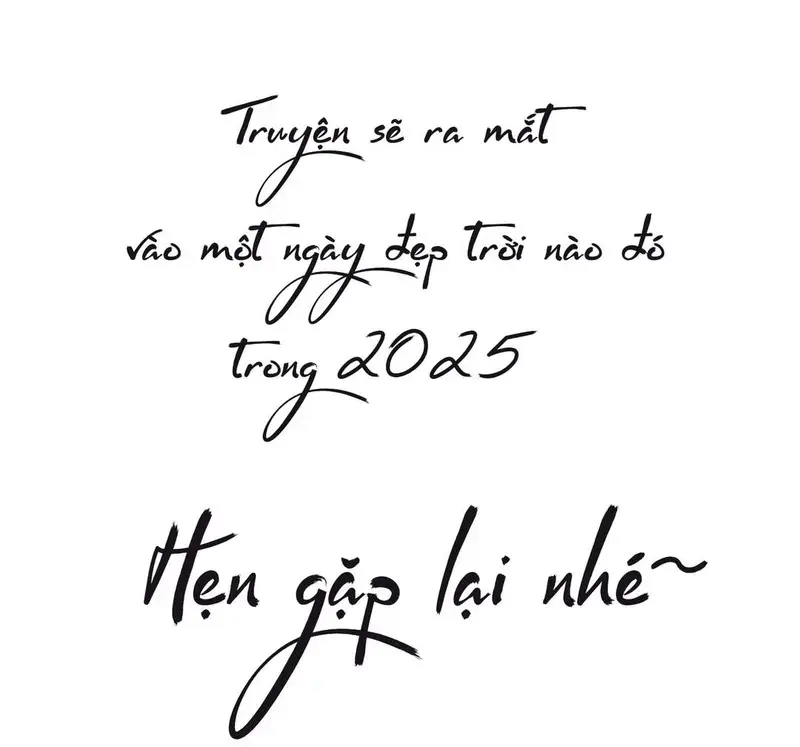 Truyện sẽ ra mắt
vào một ngày đẹp trời nào đó
trong 2025
Hẹn gặp lại nhé~